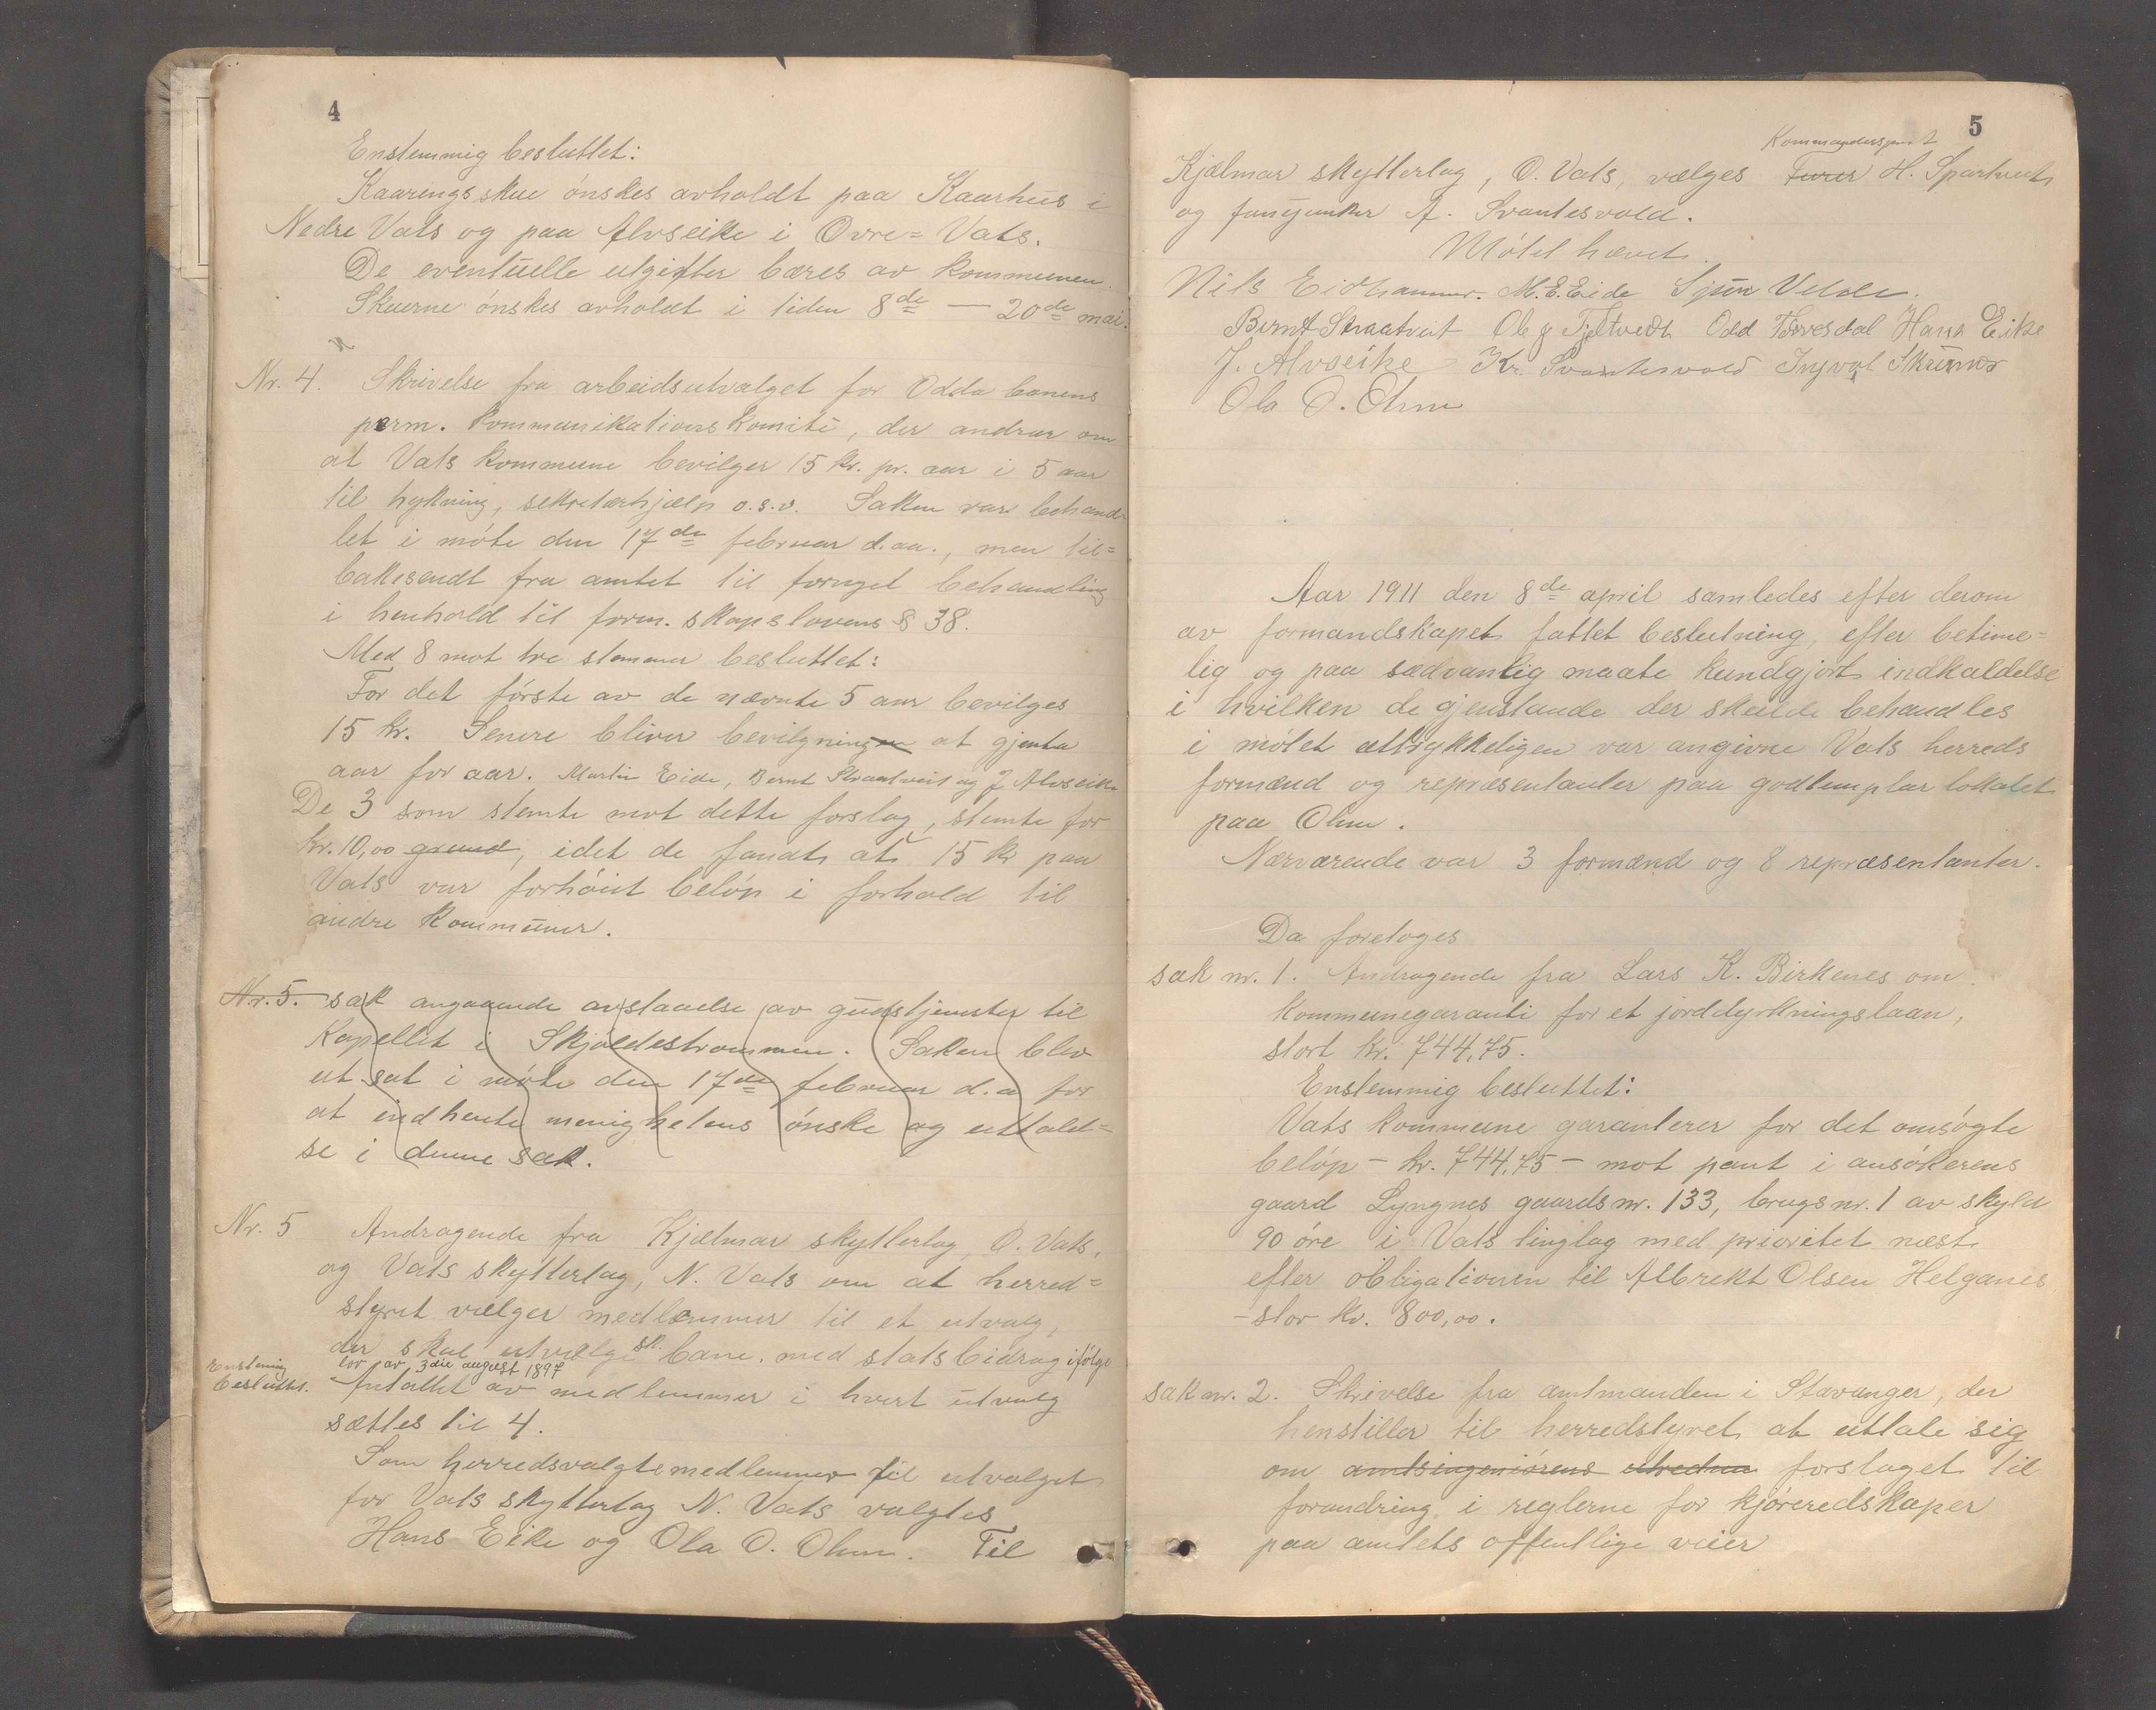 4
Enstemmig besluttet:
Kaaringsskue ønskes avholdt paa Kaarhus i
Nedre Vats og paa Alvseike i Øvre=Vats.
De eventuelle utgifter bæres av kommunen.
Skuerne ønskes avholdt i tiden 8de — 20de mai.
Nr. 4. Skrivelse fra arbeidsutvalget for Odda banens
perm. kommunikationskomite, der andrar om
at Vats kommune bevilger 15 kr. pr. aar i 5 aar
til trykning, sekretærhjælp o.s.v. Saken var behand-
let i møte den 17de februar d.aa., men til=
bakesendt fra amtet til fornyet behandling
i henhold til form.skapslovens § 38.
Med 8 mot tre stemmer besluttet:
For det første av de nævnte 5 aar bevilges
15 kr. Senere bliver bevilgningen at gjenta
aar for aar. Martin Eide, Bernt Straatveit og J. Alvseike
De 3 som stemte mot dette forslag, stemte for
kr. 10,00 grund, idet de fandt at 15 kr paa
Vats var forhøit beløp i forhold til
andre kommuner.
Nr. 5. sak angaaende avstaaelse av gudstjenster til
Kapellet i Skjoldestrømmen. Saken blev
ut.sat i møte den 17de februar d.a for
at indhente menighetens ønske og uttalel=
se i denne sak.
Nr. 5 Andragende fra Kjælmar skytterlag, Ø. Vats,
og Vats skytterlag, N. Vats om at herred=
styret vælger medlemmer til et utvalg,
der skal utvælge sk. bane med statsbidrag ifølge
lov av 3die august 1897
Enstemig
besluttet. Antallet av medlemmer i hvert utvalg
sættes til 4.
Som herredsvalgte medlemmer til utvalget
for Vats skytterlag N. Vats valgtes
Hans Eike og Ola O. Olum. Til
5
Kommandersersjant
Kjælmar skytterlag, Ø. Vats, vælges Furer H. Spartveit
og fanejunker A. Svantesvold.
Møtet hævet.
Nils Eidhammer. M.E.Eide Sjur Velde.
Bernt Straatveit Ole J Fjeltvedt Odd Torvesdal Hans Eike
J. Alvseike Kr. Svantesvold Ingval Skrunes
Ola O. Olum
Aar 1911 den 8de april samledes efter derom
av formandskapet fattet beslutning, efter betime=
lig og paa sædvanlig maate kundgjort indkaldelse
i hvilken de gjenstande der skulde behandles
i møtet uttrykkeligen var angivne Vats herreds
formænd og repræsentanter paa godtemplar lokalet
paa Olum.
Nærværende var 3 formænd og 8 repræsentanter.
Da foretoges
sak nr. 1. Andragende fra Lars K. Birkenes om
kommunegaranti for et jorddyrkningslaan,
stort kr. 744,75.
Enstemmig besluttet:
Vats kommune garanterer for det omsøgte
beløp – kr. 744,75 – mot pant i ansøkerens
gaard Lyngnes gaardsnr. 133, brugsnr. 1 av skyld
90 øre i Vats tinglag med prioritet næst
efter obligationen til Albrekt Olsen Helganes
– stor kr. 800,00.
sak nr. 2. Skrivelse fra amtmanden i Stavanger, der
henstiller til herredstyret at uttale sig
om amtsingeniørens utredna forslaget til
forandring i reglerne for kjøreredskaper
paa amtets offentlige veier